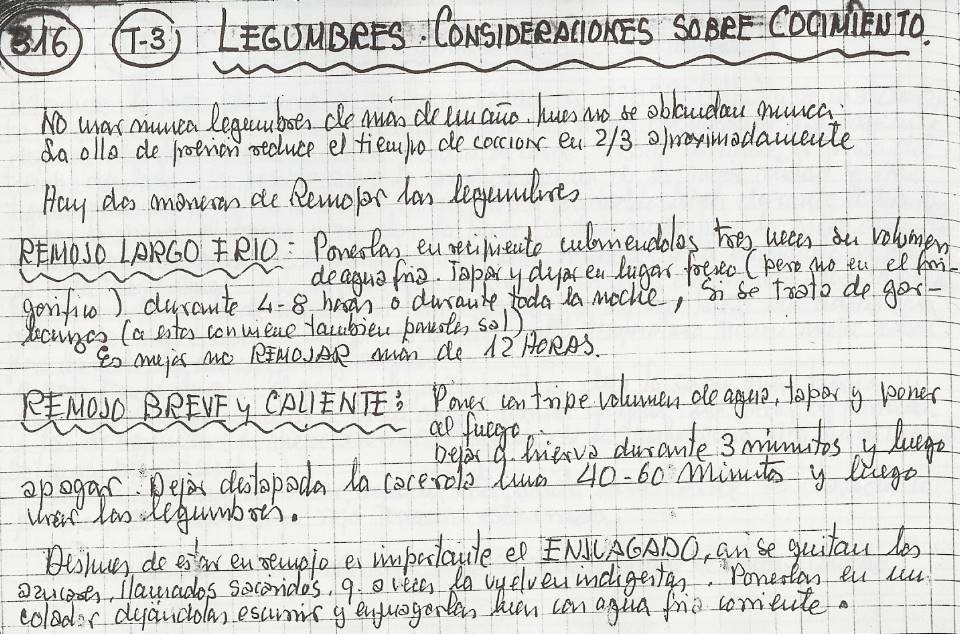 316 T-3 LEGUMBRES. CONSIDERACIONES SOBRE COCIMIENTO.
No usar nunca legumbres de más de un año. pues no se ablandan nunca.
La olla de presión reduce el tiempo de coccion en 2/3 aproximadamente
Hay dos maneras de Remojar las legumbres
REMOJO LARGO FRIO: Ponerlas en recipiente cubriendolas tres veces su volumen
de agua fria. Tapar y dejar en lugar fresco (pero no en el fri-
gorifico) durante 4-8 horas o durante toda la noche, si se trata de gar-
banzos (a estos conviene tambien ponerles sal)
Es mejor no REMOJAR más de 12 HORAS.
REMOJO BREVE y CALIENTE: Poner con tripe volumen de agua, tapar y poner
al fuego.
Dejar q. hierva durante 3 minutos y luego
apagar. Dejar destapada la cacerola unos 40-60 Minutos y luego
usar las legumbres.
Despues de estar en remojo es importante el ENJUAGADO, asi se quitan los
azucares, llamados sacáridos, q. a veces la vuelven indigestas. Ponerlas en un
colador dejándolas escurrir y enjuagarlas bien con agua fria corriente.